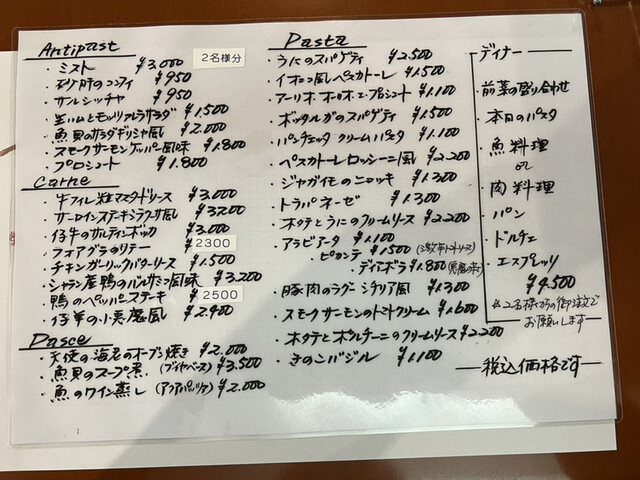 Antipast
・ミスト ¥3,000 2名様分
・砂肝のコンフィ ¥950
・サルシッチャ ¥950
・生ハムとモッツァレラサラダ ¥1,500
・魚貝のサラダギリシャ風 ¥2,000
・スモークサーモンケッパー風味 ¥1,800
・プロシュート ¥1,800
Carne
・牛フィレ粒マスタードソース ¥3,000
・サーロインステーキシラクーサ風 ¥3,200
・仔牛のサルティンボッカ ¥3,000
・フォアグラのソテー ¥2300
・チキンガーリックバターソース ¥1,500
・シャラン産鴨のバルサミコ風味 ¥3,200
・鴨のペッパーステーキ ¥2500
・仔羊の小悪魔風 ¥2,400
Pasce
・天使の海老のオーブン焼き ¥2,000
・魚貝のスープ煮(ブイヤベース) ¥3,500
・魚のワイン蒸し(アクアパッツァ) ¥2,000
Pasta
・うにのスパゲティ ¥2,500
・イオニコ風ペスカトーレ ¥1,500
・アーリオ・オーリオ・エ・プロシュート ¥1,100
・ボッタルガのスパゲティ ¥1,500
・パンチェッタクリームパスタ ¥1,100
・ペスカトーレロッシーニ風 ¥2,200
・ジャガイモのニョッキ ¥1,300
・トラパネーゼ ¥1,300
・ホタテとうにのクリームソース ¥2,200
・アラビアータ ¥1,100
・ピカンテ ¥1,500 (激辛トマトソース)
・ディアボラ ¥1,800
・豚肉のラグーシチリア風 ¥1,300
・スモークサーモンのトマトクリーム ¥1,600
・ホタテとポルチーニのクリームソース ¥2,200
・きのこバジル ¥1,100
ディナー
・前菜の盛り合わせ
・本日のパスタ
・魚料理
or
・肉料理
・パン
・ドルチェ
・エスプレッソ
¥4,500
※2名様からの御注文で
お願いします
―税込価格です―